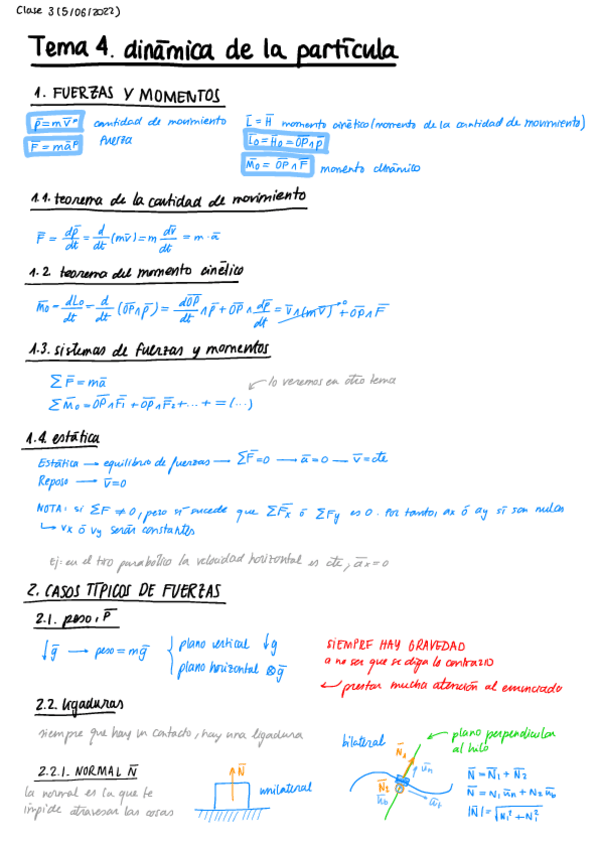 Clase 3 (5/06/2022)
Tema 4. dinámica de la partícula
1. FUERZAS Y MOMENTOS
p̄ = m v̄ cantidad de movimiento L̄ = H̄ momento cinético (momento de la cantidad de movimiento)
F̄ = m ā fuerza L̄o = H̄o = OP ∧ p̄
M̄o = OP ∧ F̄ momento dinámico
1.1. teorema de la cantidad de movimiento
F̄ = dp̄/dt = d/dt (mv̄) = m dv̄/dt = m · ā
1.2 teorema del momento cinético
M̄o = dLo/dt = d/dt (OP ∧ p̄) = dOP/dt ∧ p̄ + OP ∧ dp̄/dt = v̄ ∧ (m v̄) 0 + OP ∧ F̄
1.3. sistemas de fuerzas y momentos
∑ F̄ = mā ← lo veremos en otro tema
∑ M̄o = OP ∧ F̄1 + OP ∧ F̄2 + ... + = (...)
1.4. estática
Estática → equilibrio de fuerzas → ∑F̄ = 0 → ā = 0 → v̄ = cte
Reposo → v̄ = 0
NOTA: si ∑F ≠ 0, pero sí sucede que ∑F̄x ó ∑Fy es 0. Por tanto, ax ó ay sí son nulas
↳ vx ó vy serán constantes
Ej: en el tiro parabólico la velocidad horizontal es cte, āx = 0
2. CASOS TÍPICOS DE FUERZAS
2.1. peso, P̄
↓ḡ → peso = mḡ { plano vertical ↓g
plano horizontal ⊗ḡ
SIEMPRE HAY GRAVEDAD
a no ser que se diga lo contrario
↳ prestar mucha atención al enunciado
2.2. ligaduras
siempre que hay un contacto, hay una ligadura
2.2.1. NORMAL N̄
la normal es la que te
impide atravesar las cosas
N̄
unilateral
bilateral
plano perpendicular
al hilo
N̄1
ūn
N̄2
ūb
ūt
N̄ = N̄1 + N̄2
N̄ = N1 ūn + N2 ūb
|N̄| = √N1² + N1²